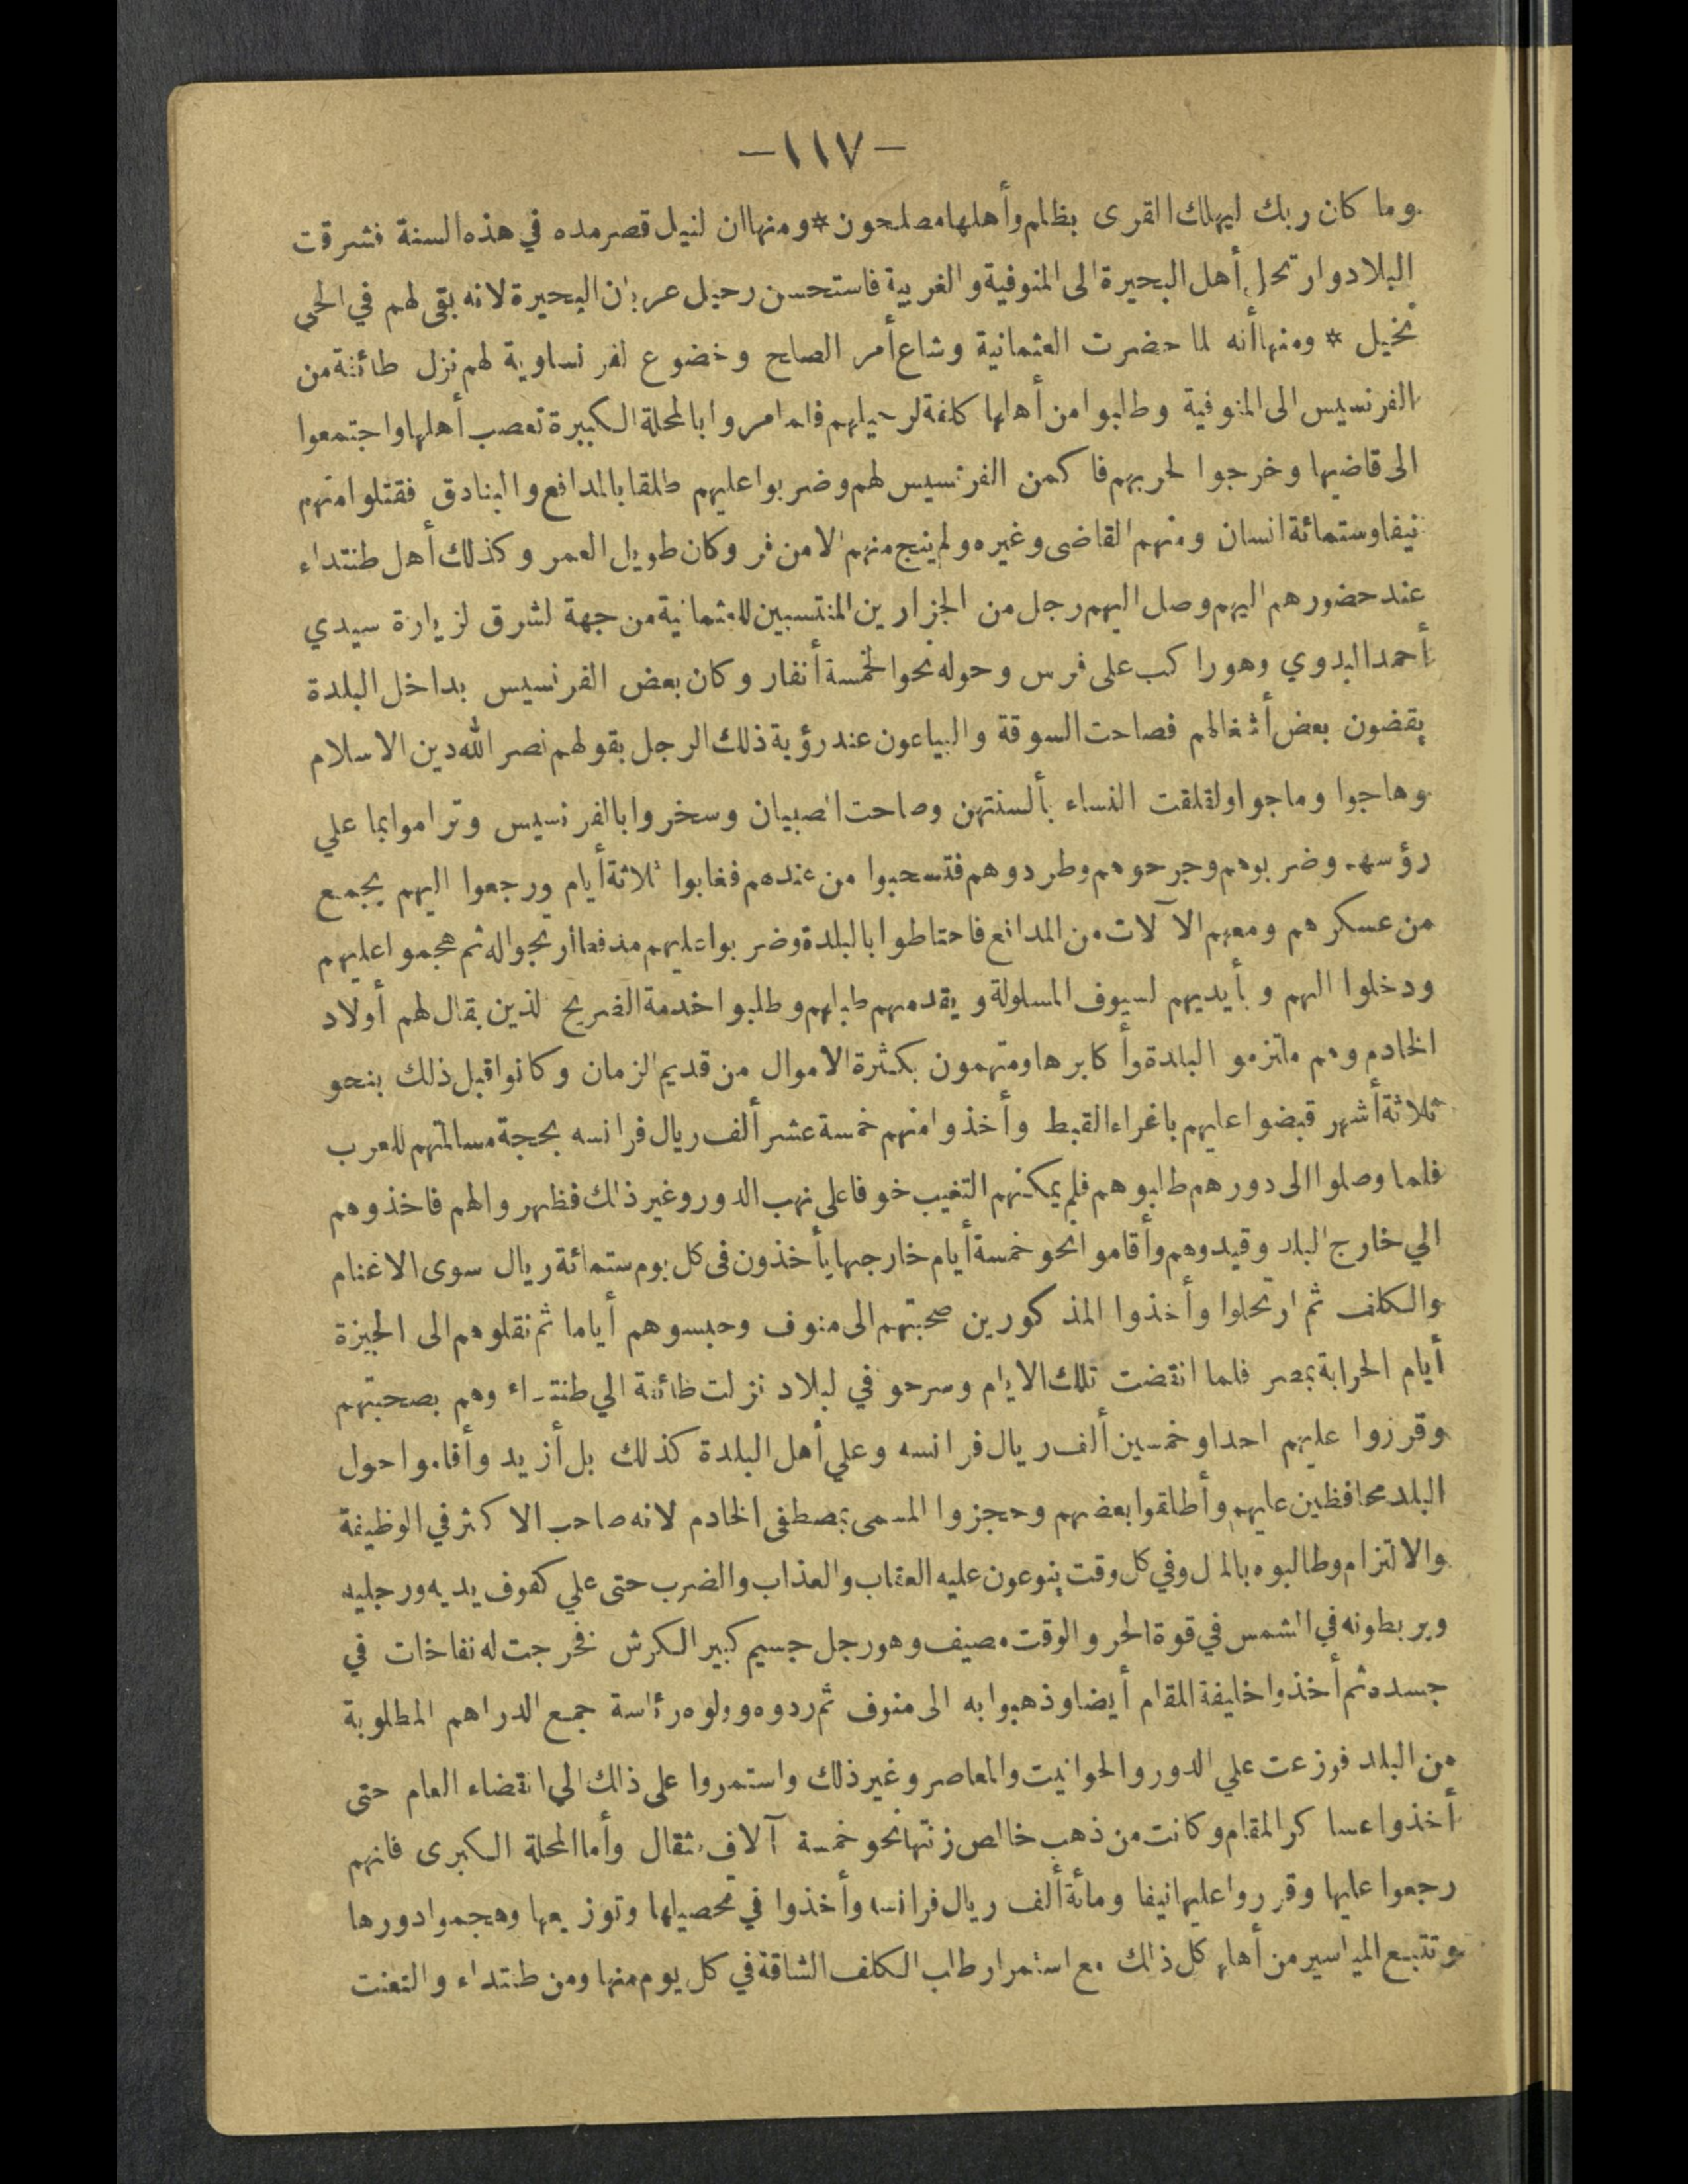 -١١٧-
وما كان ربك ليهلك القرى بظلم وأهلها مصلحون * ومنها ان لنيل قصر مده في هذه السنة فشرقت
البلاد وارتحل أهل البحيرة الى المنوفية والغربية فاستحسن رحيل عربان البحيرة لانه بقى لهم في الحى
نخيل * ومنها أنه لما حضرت العثمانية وشاع أمر الصلح وخضوع لفرنساوية لهم نزل طائفة من
الفرنسيس الى المنوفية وطلبوا من أهلها كلفة لرحيلهم فلما مروا بالمحلة الكبيرة تعصب أهلها واجتمعوا
الى قاضيها وخرجوا لحربهم فاكمن الفرنسيس لهم وضربوا عليهم طلقا بالمدافع والبنادق فقتلوا منهم
نيفا وستمائة انسان ومنهم القاضى وغيره ولم ينج منهم الا من فر وكان طويل العمر وكذلك أهل طنتداء
عند حضورهم اليهم وصل اليهم رجل من الجزارين المنتسبين للعثمانية من جهة لشرق لزيارة سيدي
أحمد البدوي وهو راكب على فرس وحوله نحو الخمسة أنفار وكان بعض الفرنسيس بداخل البلدة
يقضون بعض أشغالهم فصاحت السوقة والبياعون عند رؤية ذلك الرجل بقولهم نصر الله دين الاسلام
وهاجوا وماجوا ولقلقت النساء بألسنتهن وصاحت الصبيان وسخروا بالفرنسيس وتراموا بما علي
رؤسهم وضربوهم وجرحوهم وطردوهم فتسحبوا من عندهم فغابوا ثلاثة أيام ورجعوا اليهم بجمع
من عسكرهم ومعهم الآلات من المدافع فاحتاطوا بالبلدة وضربوا عليهم مدفعا ارتجوا له ثم هجموا عليهم
ودخلوا اليهم وبأيديهم لسيوف المسلولة ويقدمهم طبلهم وطلبوا خدمة الضريح لذين يقال لهم أولاد
الخادم وهم ملتزمو البلدة وأكابرها ومتهمون بكثرة الاموال من قديم الزمان وكانوا قبل ذلك بنحو
ثلاثة أشهر قبضوا عليهم باغراء القبط وأخذوا منهم خمسة عشر ألف ريال فرانسه بحجة مسالمتهم للعرب
فلما وصلوا الى دورهم طلبوهم فلم يمكنهم التغيب خوفا على نهب الدور وغير ذلك فظهروا لهم فاخذوهم
الي خارج البلد وقيدوهم وأقاموا نحو خمسة أيام خارجها يأخذون فى كل يوم ستمائة ريال سوى الاغنام
والكلف ثم ارتحلوا وأخذوا المذكورين صحبتهم الى منوف وحبسوهم أياما ثم نقلوهم الى الجيزة
أيام الحرابة بمصر فلما انقضت تلك الايام وسرحو في لبلاد نزلت طائفة الي طنتداء وهم بصحبتهم
وقرزوا عليهم احدا وخمسين ألف ريال فرانسه وعلي أهل البلدة كذلك بل أزيد وأقاموا حول
البلد محافظين عليهم وأطلقوا بعضهم وحجزوا المسمى بمصطفى الخادم لانه صاحب الاكثر في الوظيفة
والالتزام وطالبوه بالمال وفي كل وقت ينوعون عليه العقاب والعذاب والضرب حتى علي كفوف يديه ورجليه
ويربطونه في الشمس في قوة الحر والوقت مصيف وهو رجل جسيم كبير الكرش فخرجت له نفاخات في
جسده ثم أخذوا خليفة المقام أيضا وذهبوا به الى منوف ثم ردوه وولوه رئاسة جمع الدراهم المطلوبة
من البلد فوزعت علي الدور والحوانيت والمعاصر وغير ذلك واستمروا على ذلك الي انقضاء العام حتى
أخذوا عساكر المقام وكانت من ذهب خالص زنتها نحو خمسة آلاف مثقال وأما المحلة الكبرى فانهم
رجعوا عليها وقرروا عليها نيفا ومائة ألف ريال فرانسه وأخذوا في تحصيلها وتوزيعها وهجموا دورها
وتتبع المياسير من أهلها كل ذلك مع استمرار طلب الكلف الشاقة في كل يوم منها ومن طنتداء والتعنت